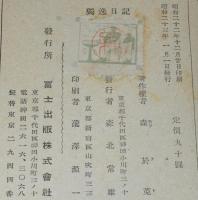 獨逸日記
昭和二十二年十二月廿日印刷
昭和二十三年一月一日發行
定價九十圓
著作權者 森於菟
東京都千代田區神田小川町三ノ十
發行者 森北常雄
東京都新宿區山吹町
印刷者
發行所 富士出版株式會社
東京都千代田區神田小川町三ノ十
電話神田二六一六・三〇六八
振替東京二九四四番